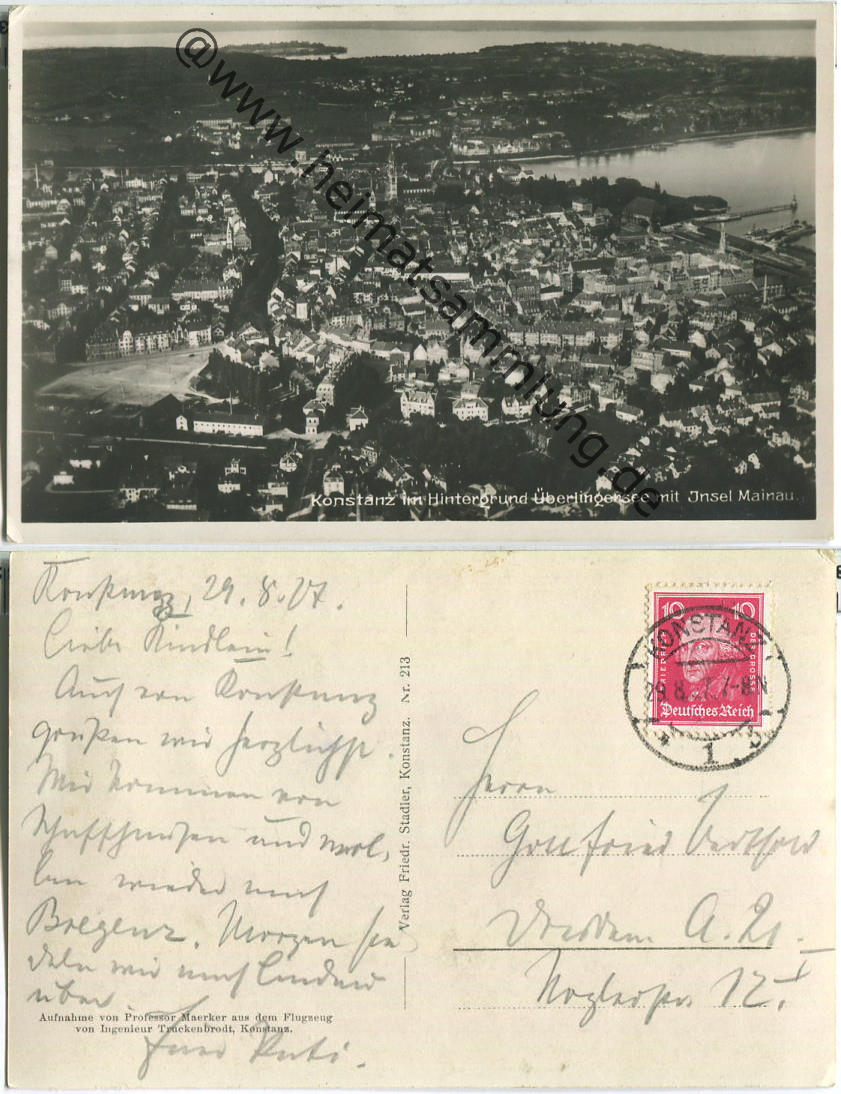 @www.heimatsammlung.de
Konstanz im Hintergrund Überlingersee mit Insel Mainau.
Konstanz, 29.8.27.
Liebe Kindlein!
Auch von Konstanz
grüßen wir herzlichst.
Wir kommen von
Schaffhausen und wol-
len wieder nach
Bregenz. Morgen
wir nach Lindau
über.
Aufnahme von Professor Maerker aus dem Flugzeug
von Ingenieur Truckenbrodt, Konstanz.
Verlag Friedr. Stadler, Konstanz. Nr. 213
10 10
FRIEDRICH DER GROSSE
Deutsches Reich
KONSTANZ
29.8.27.7-8N
* 1
Herrn
Gottfried
Dresden A. 21.
12.I